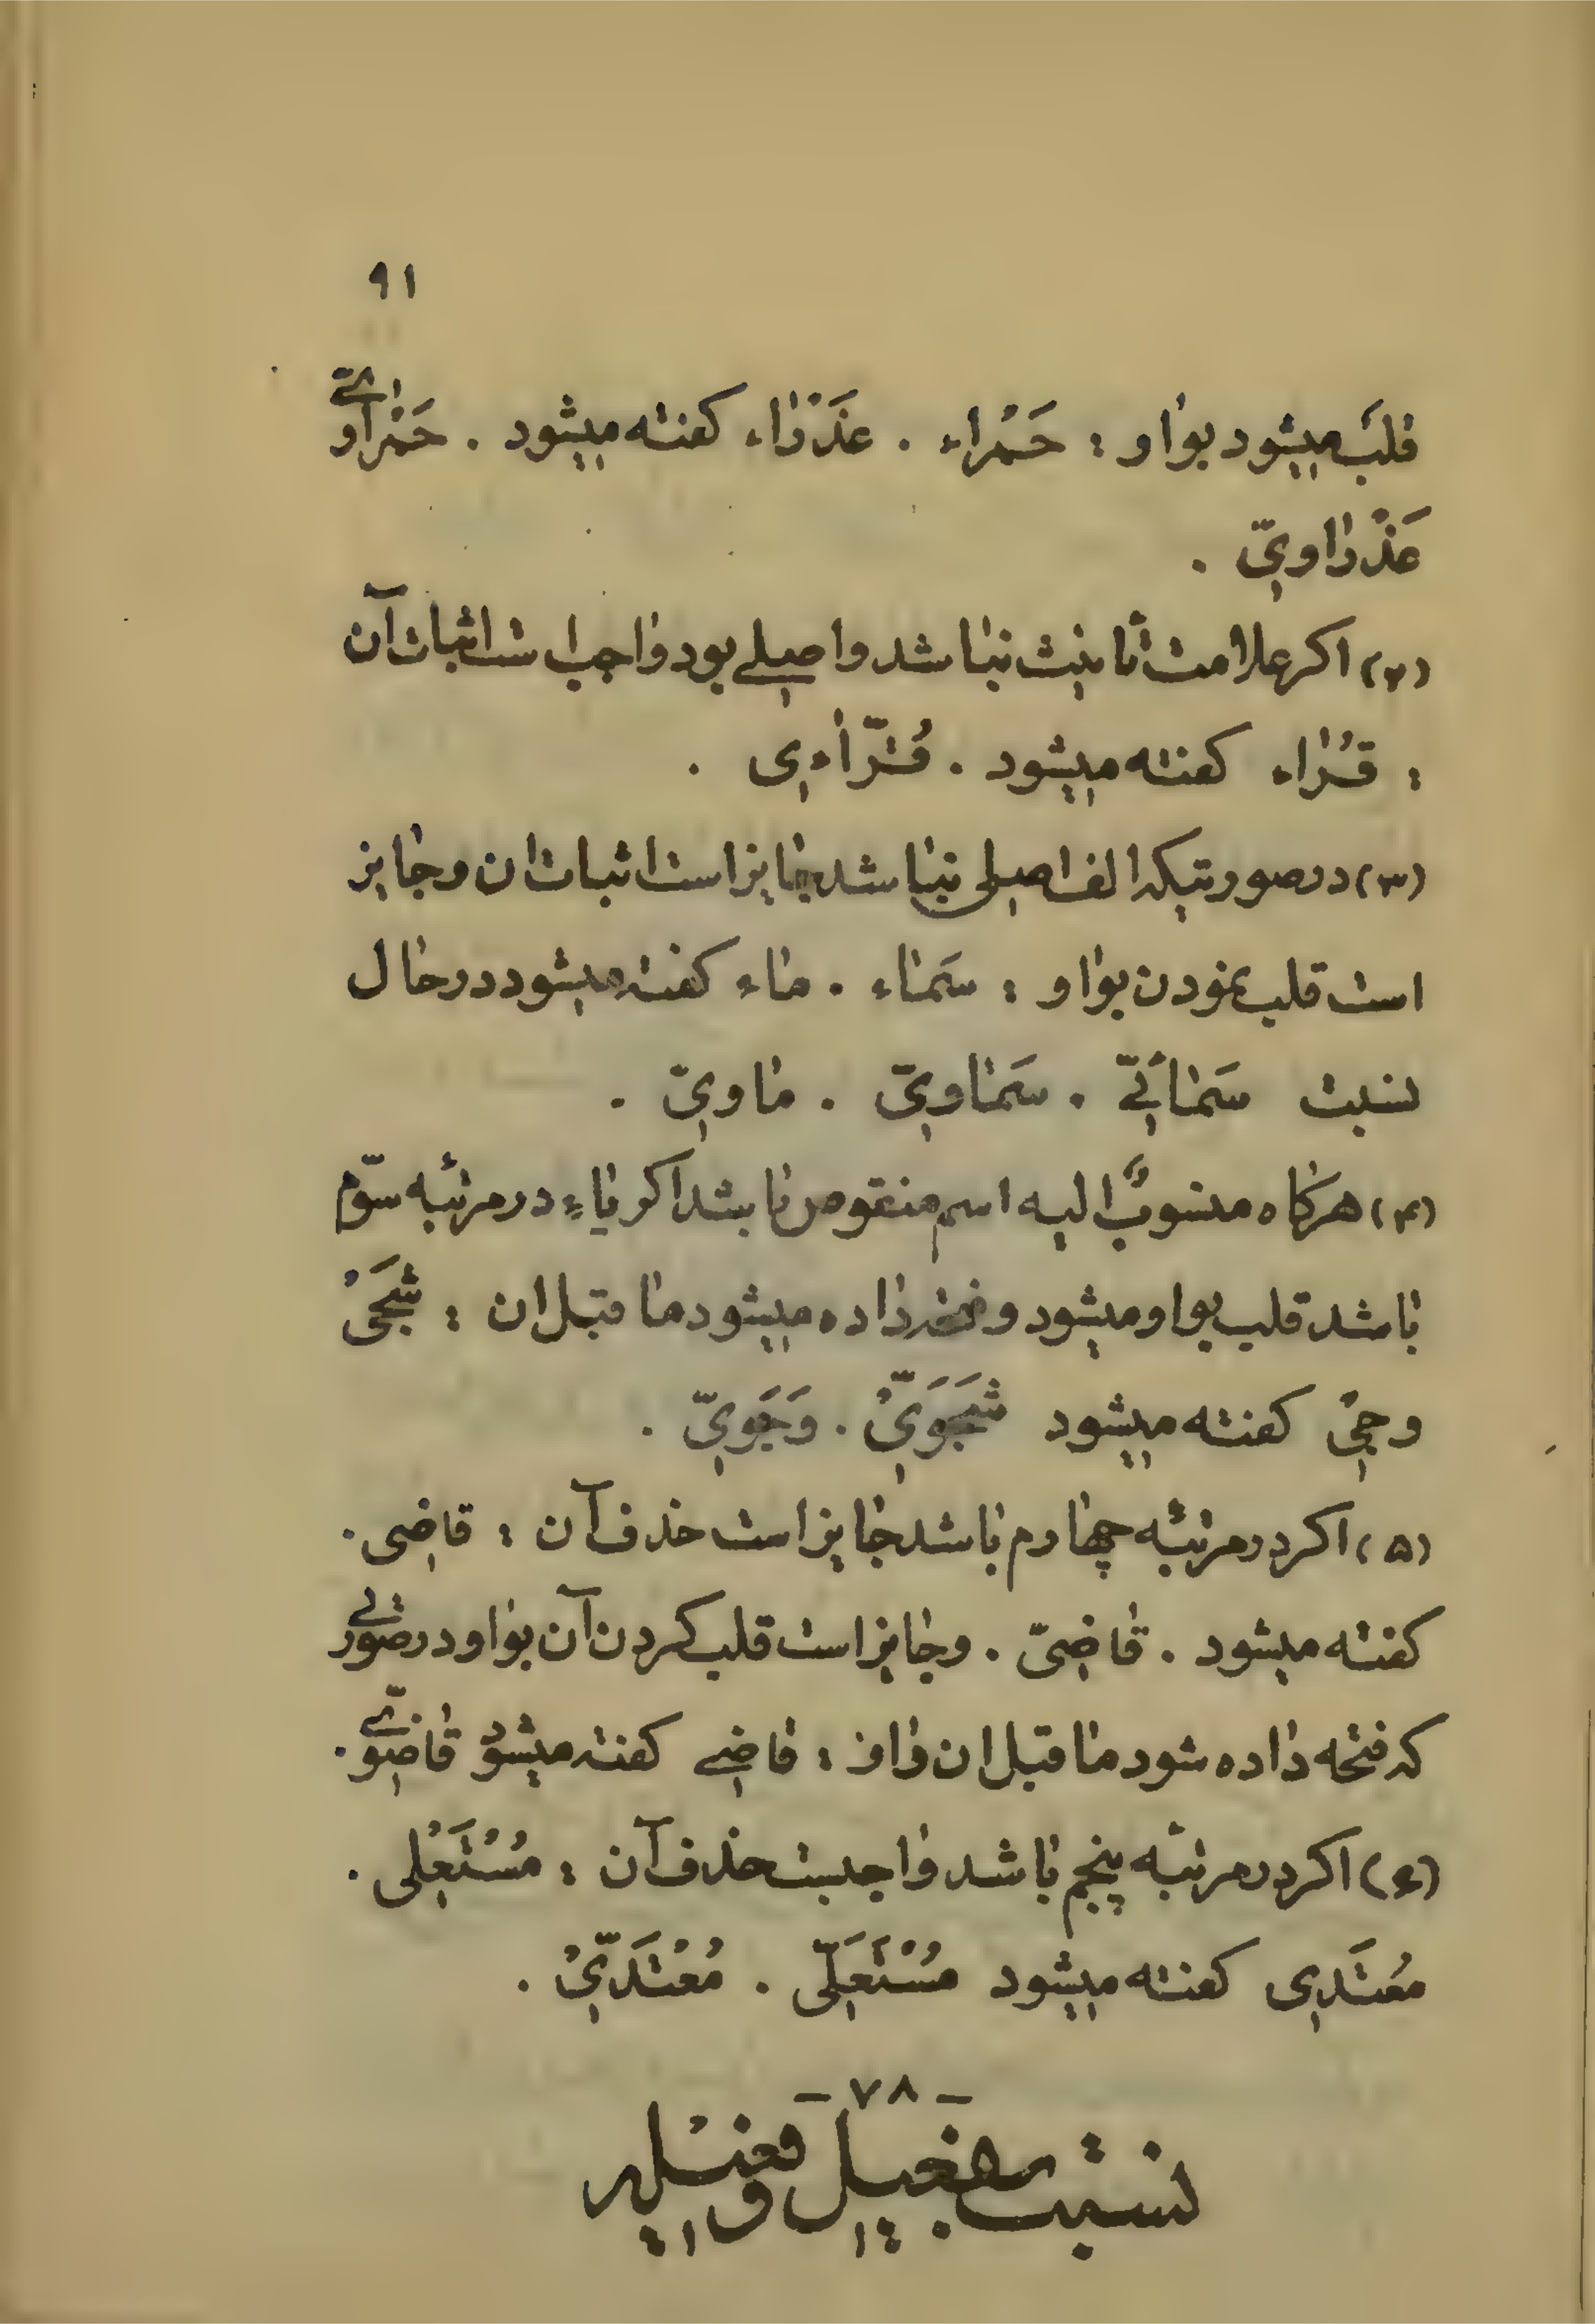 ۹۱
قلب میشود بواو : حَمْراء . عَذْراء کفته میشود . حَمْراویّ
عَذْراویّ .
(۲) اکر علامت تأنیث نباشد واصلی بود واجب است اثبات آن
: قُرّاء کفته میشود . قُرّاءِی .
(۳) درصورتیکه الف اصلی نباشد جایز است اثبات ان وجایز
است قلب نمودن بواو : سَماء . ماء کفته میشود درحال
نسبت سَمائیّ . سَماویّ . ماویّ .
(۴) هرکاه منسوبٌ الیه اسم منقوص باشد اکر یاءِ درمرتبه سوّم
باشد قلب بواو میشود وفتحه داده میشود ماقبل ان : شَجیُ
وجیُ کفته میشود شَجَوَیُّ . وَجَویّ .
(۵) اکر درمرتبه چهارم باشد جایز است حذف آن : قاضِی .
کفته میشود . قاضِیّ . وجایز است قلب کردن آن بواو درصورتی
که فتحه داده شود ماقبل ان واو : قاضِی کفته میشود قاضَویّ .
(۶) اکر درمرتبه پنجم باشد واجبست حذف آن : مُسْتَعْلِی .
مُعتَدِی کفته میشود مُسْتَعْلِیّ . مُعْتَدِیُّ .
– ۷۸ –
نسبت بفَعِیل وفعیله